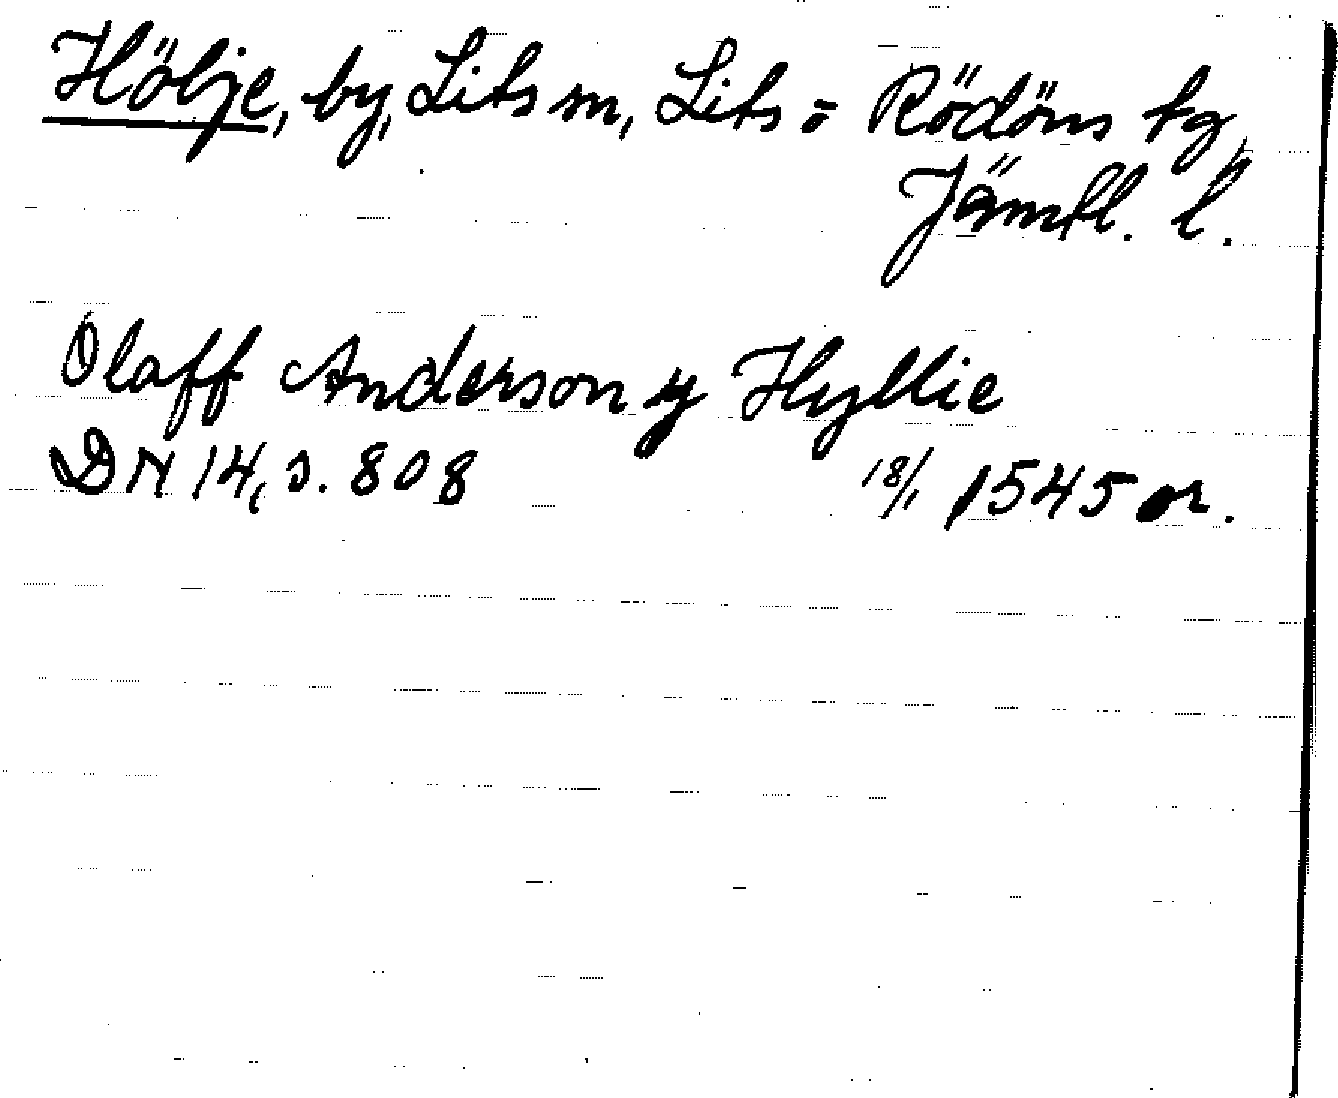 Hölje, by, Lits sn, Lits o Rödöns tg,
Jämtl. l.
Olaff Anderson y Hyllie
DN 14, s. 808 18/1 1545 or.